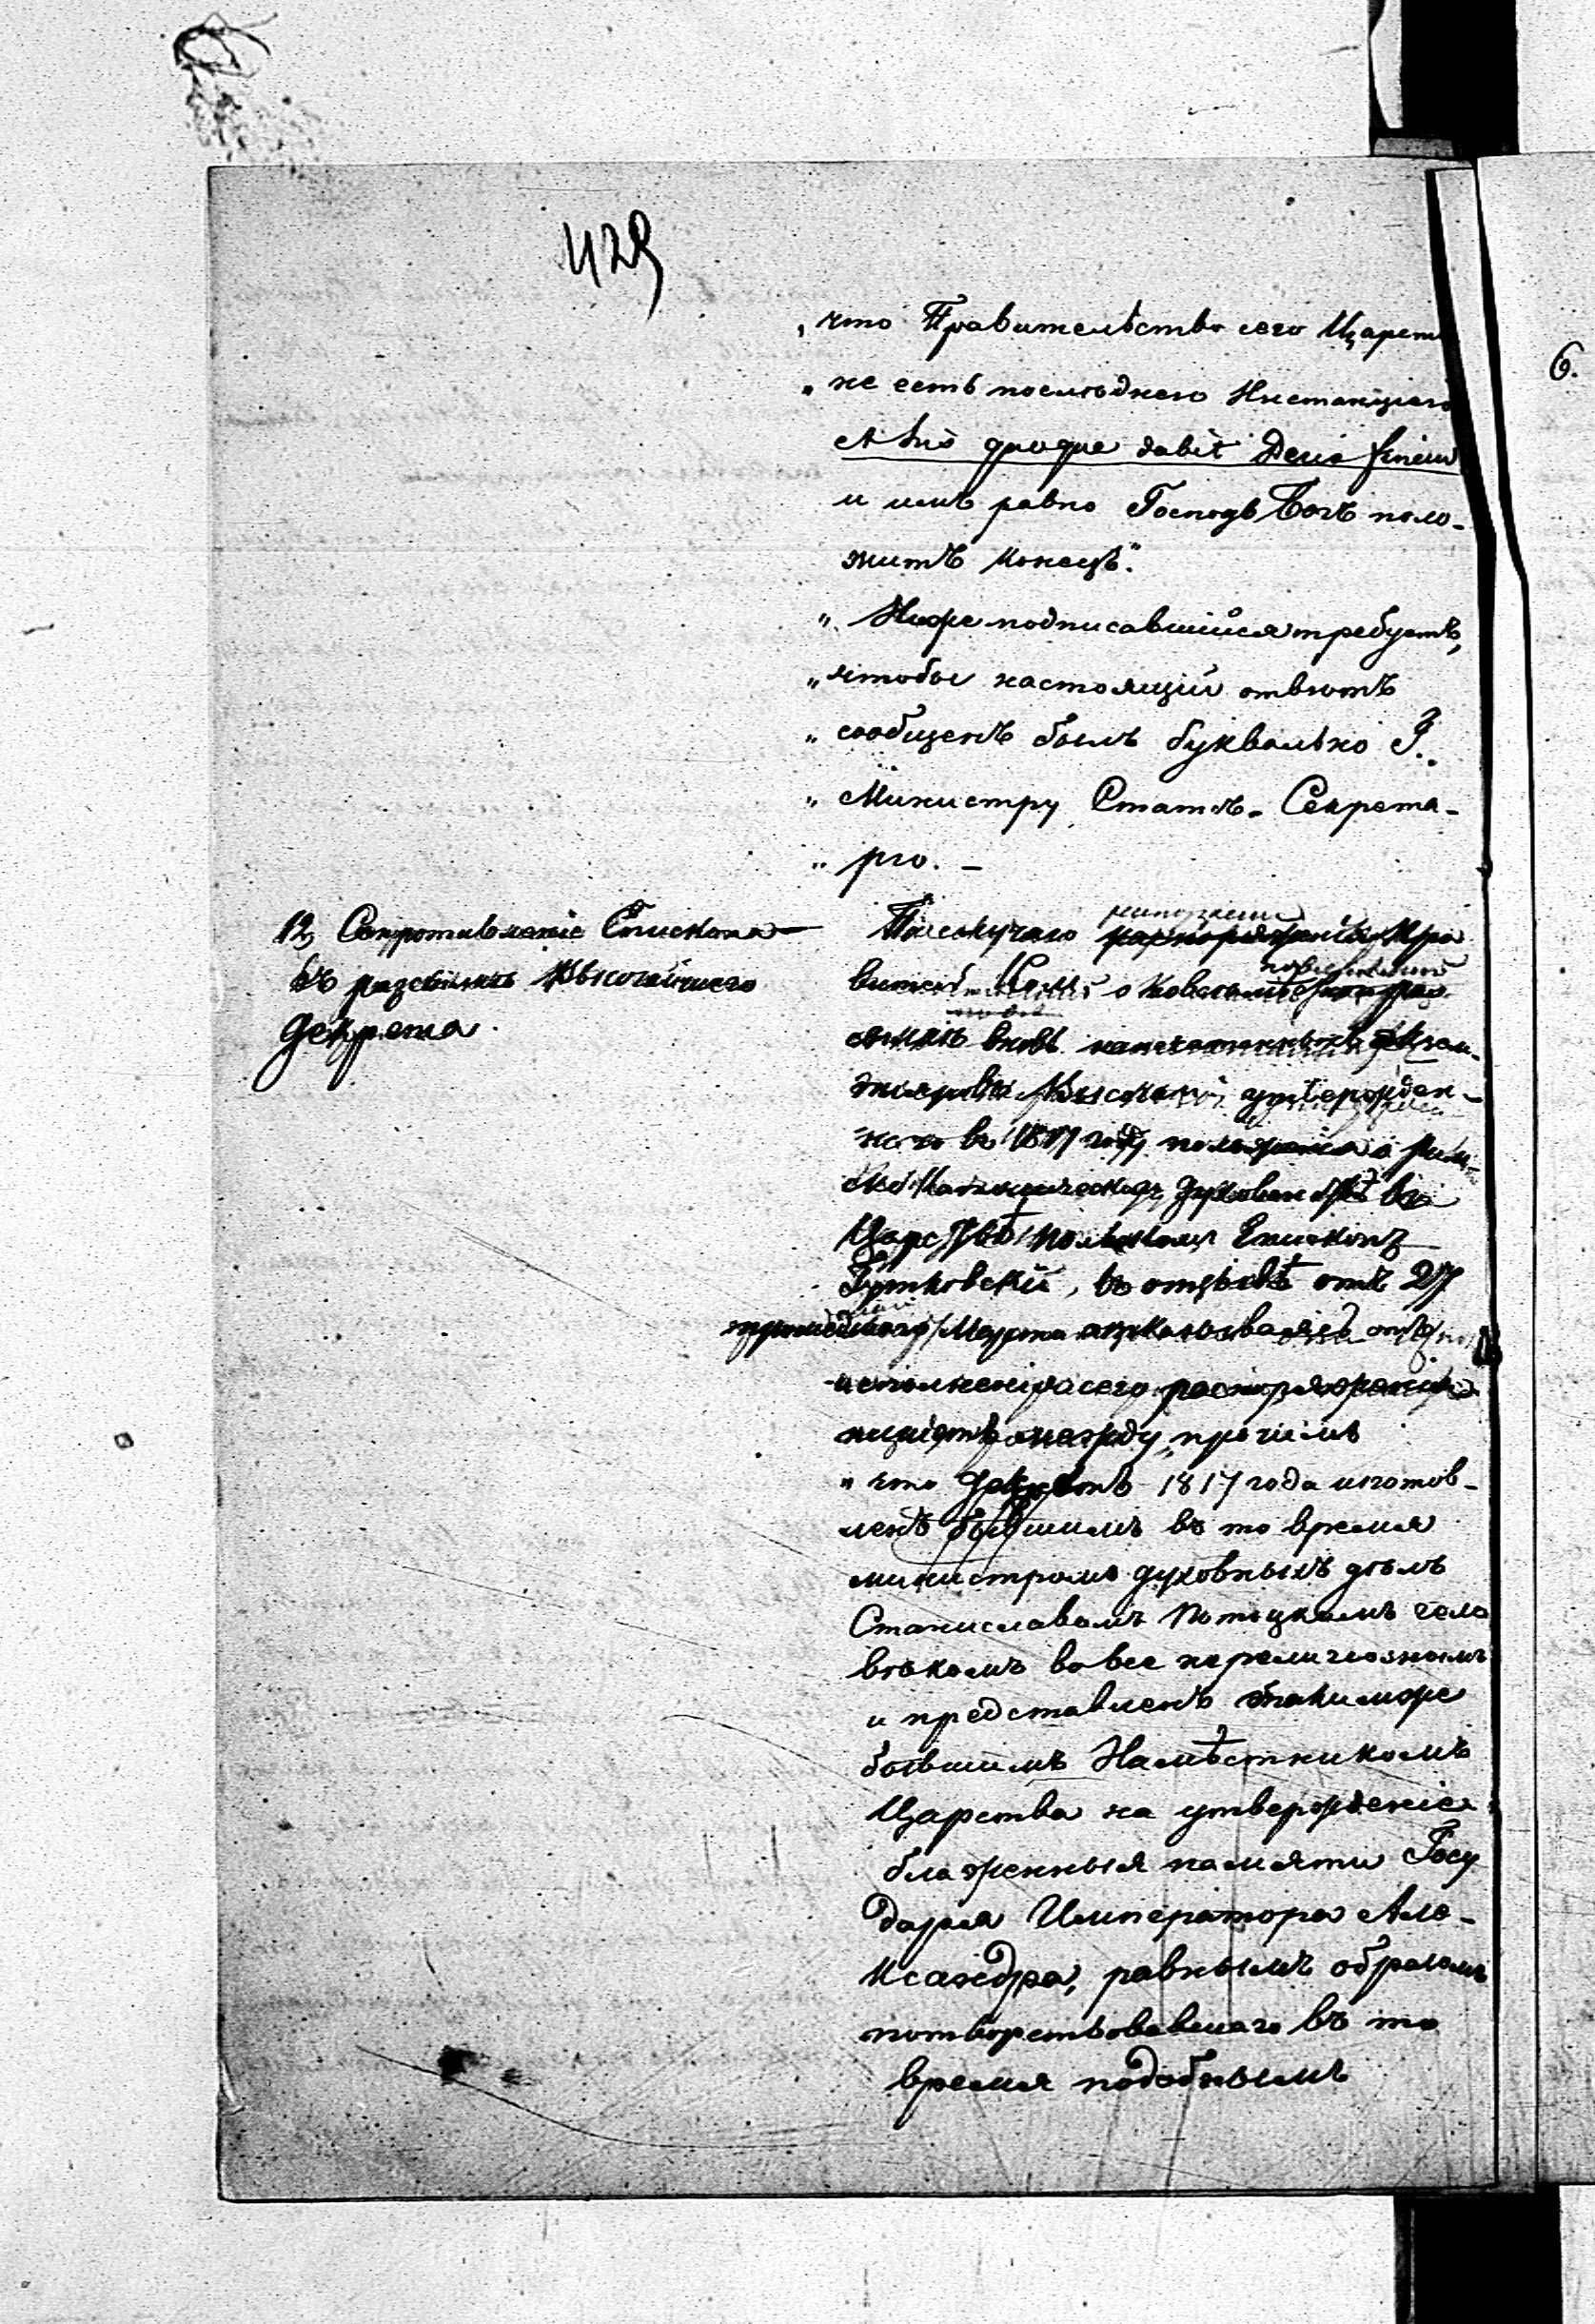 429
„что Правительство сего Царст
„не есть последнею Инстанціею
et his quoque dabit Deus finem
и имъ равно Господь Богъ поло-
житъ конецъ."
„Ниже подписавшійся требуетъ,
„чтобы настоящій отвѣтъ
„сообщенъ былъ буквально Г.
„Министру Статсъ-Секрета-
„рю. –
12, Сопротивленіе Епископа
въ Высочайшаго
Декрета.
По случаю Пра
вител о
вновь
Высочай утвержден-
наго въ 1817 году положенія о Рим-
ско Католическомъ Духовенствѣ въ
Царствѣ Польскомъ Епископъ
Гутковскій, въ отзывѣ отъ 27
Марта отказываясь отъ
исполненія сего распоряженія
пишетъ между прочимъ
„что Декретъ 1817 года изготов-
ленъ бывшимъ въ то время
министромъ духовныхъ дѣлъ
Станиславомъ Потоцкимъ чело
вѣкомъ вовсе нерелигіознымъ
и представленъ такимже
бывшимъ Намѣстникомъ
Царства на утвержденіе
блаженныя памяти Госу
даря Императора Але-
ксандра, равнымъ образомъ
потворствовавшаго въ то
время подобнымъ
6.